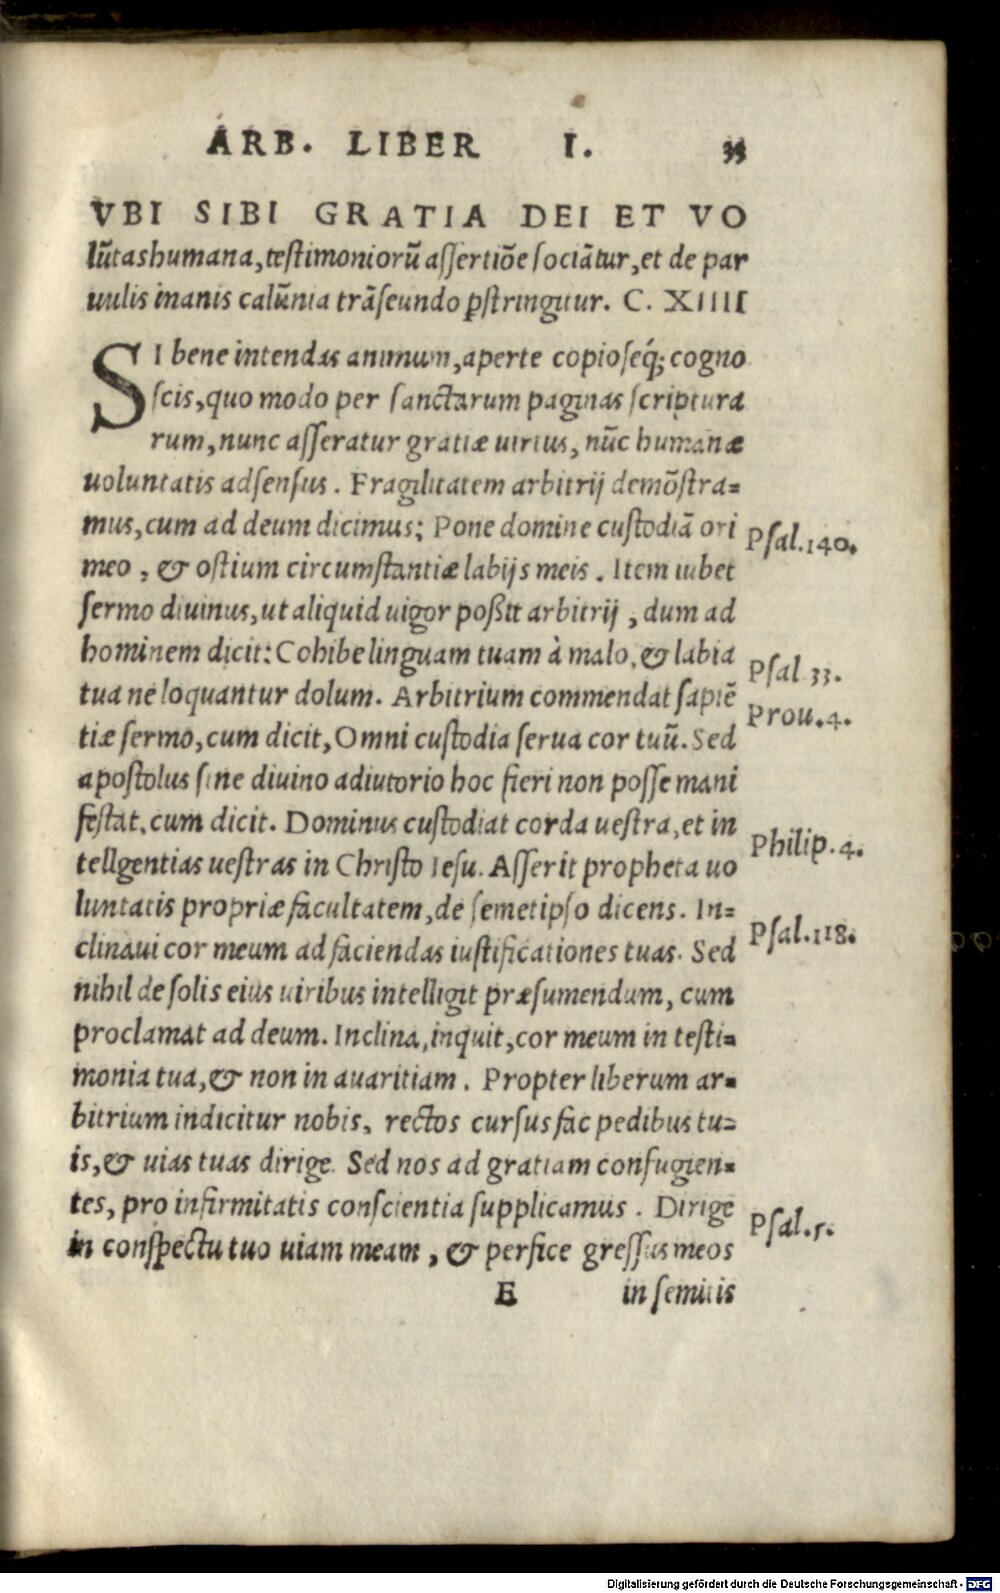 ARB. LIBER I. 33
VBI SIBI GRATIA DEI ET VO
lũtas humana, testimoniorũ assertiõe sociãtur, et de par
uulis inanis calũnia trãseundo ꝑstringitur. C. XIIII
SI bene intendas animum, aperte copioseq́; cogno
scis, quo modo per sanctarum paginas scriptura
rum, nunc asseratur gratiæ uirtus, nũc humanæ
uoluntatis adsensus. Fragilitatem arbitrij demõstra=
mus, cum ad deum dicimus; Pone domine custodiã ori
Psal.140.
meo, & ostium circumstantiæ labijs meis. Item iubet
sermo diuinus, ut aliquid uigor poßit arbitrij, dum ad
hominem dicit: Cohibe linguam tuam à malo, & labia
Psal 33.
tua ne loquantur dolum. Arbitrium commendat sapiẽ
Prou.4.
tiæ sermo, cum dicit, Omni custodia serua cor tuũ. Sed
apostolus sine diuino adiutorio hoc fieri non posse mani
festat, cum dicit. Dominus custodiat corda uestra, et in
Philip.4.
tellgentias uestras in Christo Iesu. Asserit propheta uo
luntatis propriæ facultatem, de semetipso dicens. In=
Psal.118.
clinaui cor meum ad faciendas iustificationes tuas. Sed
nihil de solis eius uiribus intelligit præsumendum, cum
proclamat ad deum. Inclina, inquit, cor meum in testi=
monia tua, & non in auaritiam. Propter liberum ar=
bitrium indicitur nobis, rectos cursus fac pedibus tu=
is, & uias tuas dirige. Sed nos ad gratiam confugien=
tes, pro infirmitatis conscientia supplicamus. Dirige
Psal.5.
in conspectu tuo uiam meam, & perfice gressus meos
E in semitis
Digitalisierung gefördert durch die Deutsche Forschungsgemeinschaft - DFG